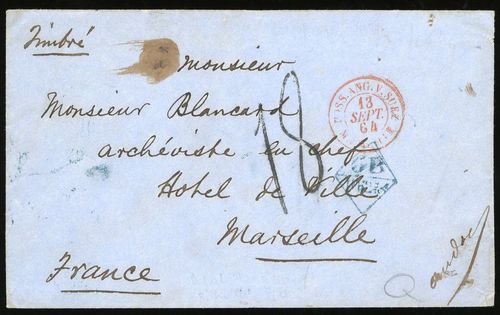 Timbré
Monsieur
Monsieur Blancard
archéviste en chef
Hotel de Ville
Marseille
France
18
POSS. ANG. V. SUEZ
13
SEPT.
64